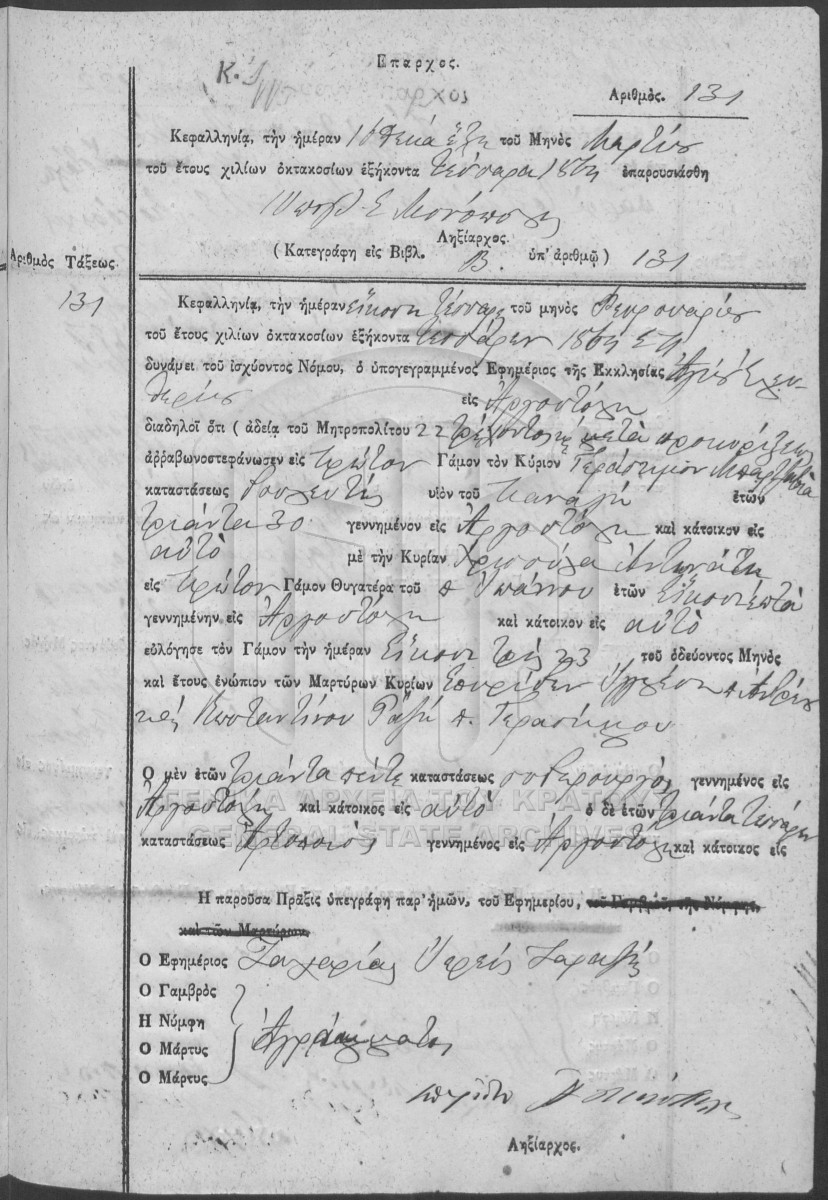 Επαρχος.
Αριθμὸς. 131
Κεφαλληνίᾳ, τὴν ἡμέραν 16 Δεκα έξη τοῦ Μηνὸς Μαρτίου
τοῦ ἔτους χιλίων ὀκτακοσίων ἑξήκοντα τέσσαρα 1864 ἐπαρουσιάσθη
Ληξίαρχος.
( Κατεγράφη εἰς Βιβλ. Β. ὑπ' ἀριθμῷ ) 131
Αριθμὸς Τάξεως.
131
Κεφαλληνίᾳ, τὴν ἡμέραν εἴκοσι τέσσαρες τοῦ μηνὸς Φευρουαρίου
τοῦ ἔτους χιλίων ὀκτακοσίων ἑξήκοντα τεσσάρων 1864
δυνάμει τοῦ ἰσχύοντος Νόμου, ὁ ὑπογεγραμμένος Εφημέριος τῆς Εκκλησίας Ἁγίου Ἐλευ-
θερίου εἰς Ἀργοστόλι
διαδηλοῖ ὅτι ( ἀδείᾳ τοῦ Μητροπολίτου 22 μετὰ προκηρύξεων
ἀῤῥαβωνοστεφάνωσεν εἰς πρῶτον Γάμον τὸν Κύριον Γεράσιμον
καταστάσεως υἱὸν τοῦ Παναγῆ ἐτῶν
τριάντα 30 γεννημένον εἰς Ἀργοστόλι καὶ κάτοικον εἰς
αὐτὸ μὲ τὴν Κυρίαν Χρισούλα Ἀντωνάτη
εἰς πρῶτον Γάμον Θυγατέρα τοῦ π Ἰωάννου ἐτῶν εἴκοσι ἑπτὰ
γεννημένην εἰς Ἀργοστόλι καὶ κάτοικον εἰς αὐτὸ
εὐλόγησε τὸν Γάμον τὴν ἡμέραν εἴκοσι τρίς 23 τοῦ ὁδεύοντος Μηνὸς
καὶ ἔτους ἐνώπιον τῶν Μαρτύρων Κυρίων Σπυρίδων π Ἀνδρέου
καὶ Κωσταντίνου π. Γερασίμου
Ο μὲν ἐτῶν τριάντα πέντε καταστάσεως σιδερουργὸς γεννημένος εἰς
Ἀργοστόλι καὶ κάτοικος εἰς αὐτὸ ὁ δὲ ἐτῶν τριάντα τεσσάρων
καταστάσεως Ἀρτοποιὸς γεννημένος εἰς Ἀργοστόλι καὶ κάτοικος εἰς
ΓΕΝΙΚΑ ΑΡΧΕΙΑ ΤΟΥ ΚΡΑΤΟΥΣ
GENERAL STATE ARCHIVES
Η παροῦσα Πρᾶξις ὑπεγράφη παρ' ἡμῶν, τοῦ Εφημερίου, τοῦ Γαμβροῦ τῆς Νύμφης,
καὶ τῶν Μαρτύρων.
Ο Εφημέριος Ζαχαρίας Ἱερεὺς
Ο Γαμβρὸς
Η Νύμφη
Ο Μάρτυς Ἀγράμματοι
Ο Μάρτυς
Ληξίαρχος.